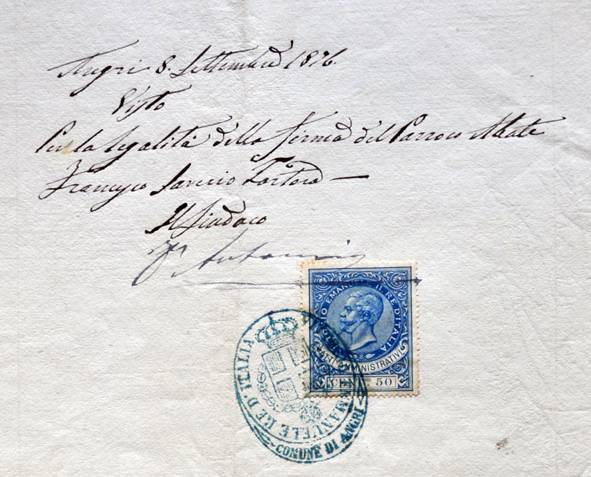 Angri 8. Settembre 1876.
Visto
Per la legalità della firma del Parroco Abate
Francesco Saverio Tortora —
Il Sindaco
EMANUELE II RE D'ITALIA
ATTI AMMINISTRATIVI
CEN 50
EMANUELE RE D'ITALIA
COMUNE DI ANGRI